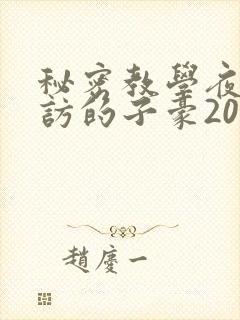 秘密教學夜
訪的子豪20
趙慶一